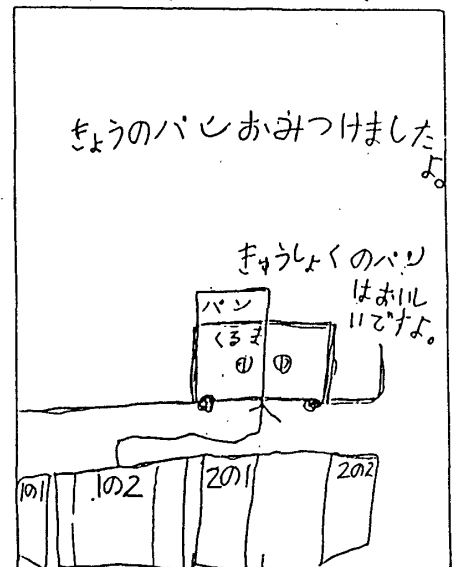 きょうのパンおみつけました
よ。
きゅうしょくのパン
はおいし
いですよ。
パン
くるま
1の1
1の2
2の1
2の2